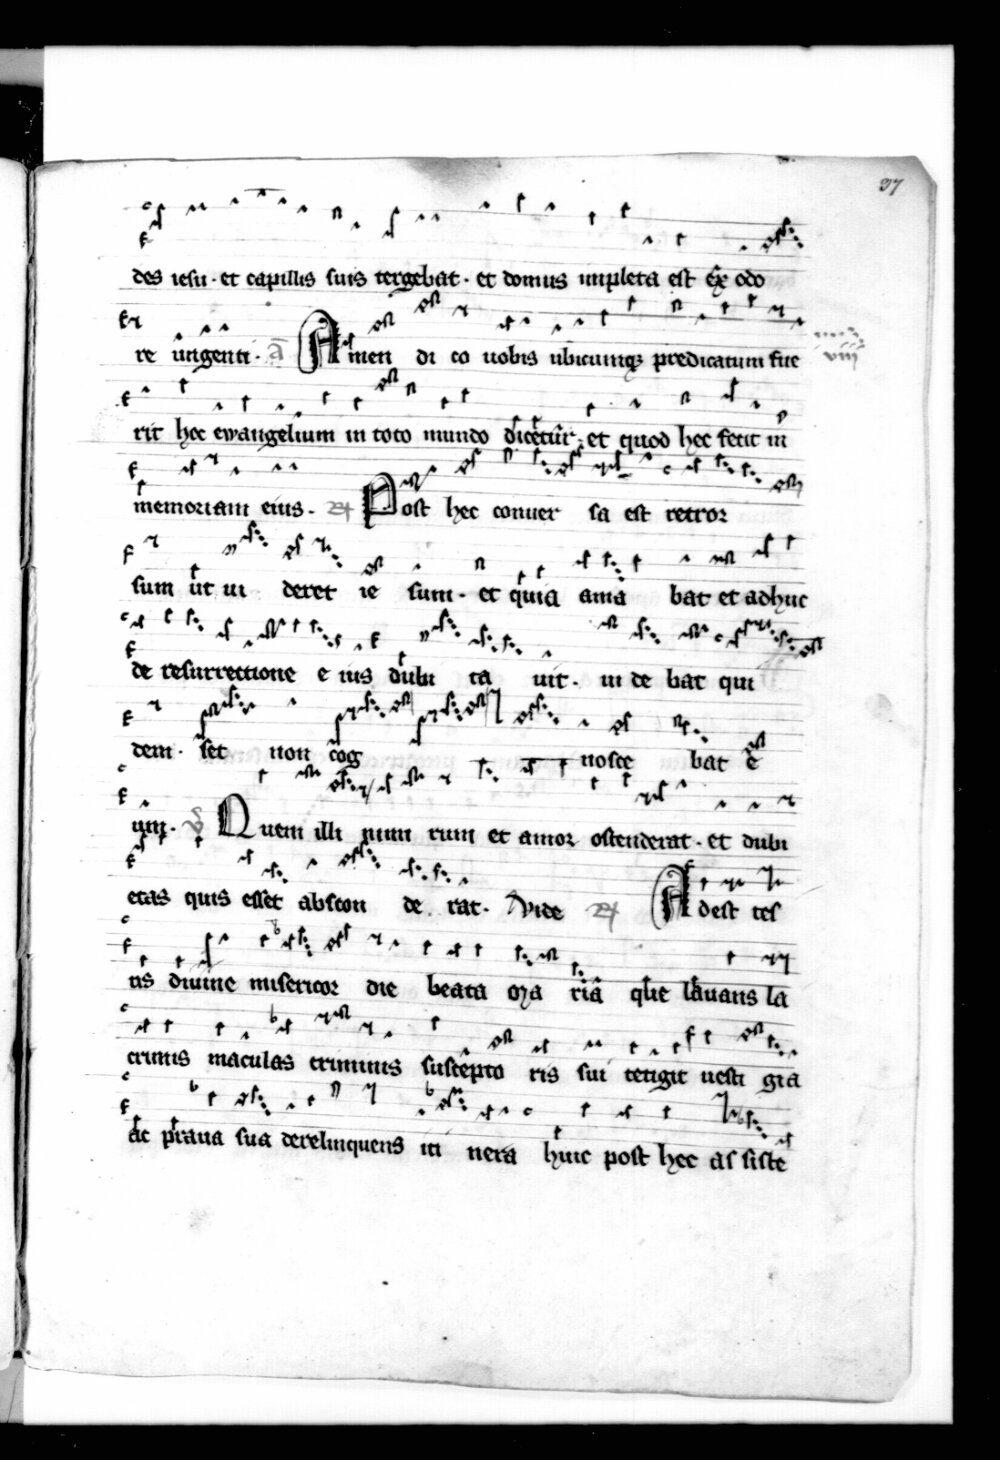 37
des iesu · et capillis suis tergebat · et domus impleta est ex odo
re ungenti · a Amen di co uobis ubicumqꝫ predicatum fue
viii
rit hec ewangelium in toto mundo dicetur · et quod hec fecit in
memoriam eius · R Post hec conuer sa est retror
sum ut ui deret ie sum · et quia ama bat et adhuc
de resurrectione e ius dubi ta uit · ui de bat qui
dem · set non cog nosce bat e
um · V Quem illi nimi rum et amor ostenderat · et dubi
etas quis esset abscon de rat · Vide R Adest tes
tis diuine misericor die beata ma ria que lauans la
crimis maculas criminis suscepto ris sui tetigit uesti gia
ac praua sua derelinquens iti nera huic post hec as siste